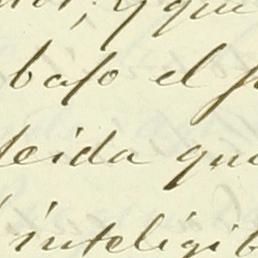 y que
bajo el p
leida que
inteligib